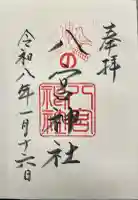 奉拝
八の宮神社
令和八年一月十六日